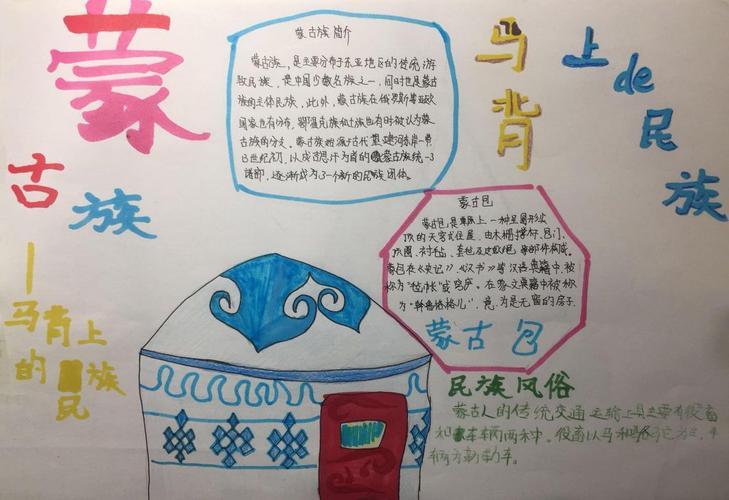 蒙
古族
—
马背上
的民族
马背
上de民族
蒙古族简介
蒙古族,是主要分布于东亚地区的传统游
牧民族,是中国少数名族之一,同时也是蒙古
族的主体民族,此外,蒙古族在俄罗斯等亚欧
国家也有分布,鄂温克族和土族也有时被认为蒙
古族的分支。蒙古族始源于古代望建河东岸一带
13世纪初,以成吉思汗为首的蒙古族统一
诸部,逐渐成为了一个新的民族团体。
蒙古包
蒙古包,是草原上一种呈圆形尖
顶的天穹式住屋,由木栅撑杆、包门、
顶圈、衬毡、套毡及皮绳等部件构成。
蒙古包在《史记》、《汉书》等汉语典籍中,被
称为"毡帐"或"穹庐"。在蒙文典籍中被称
为"斡鲁格台格儿",意为是无窗的房子.
蒙古包
民族风俗
蒙古人的传统交通运输工具主要有役畜
和车辆两种。役畜以马和为主,车
辆为